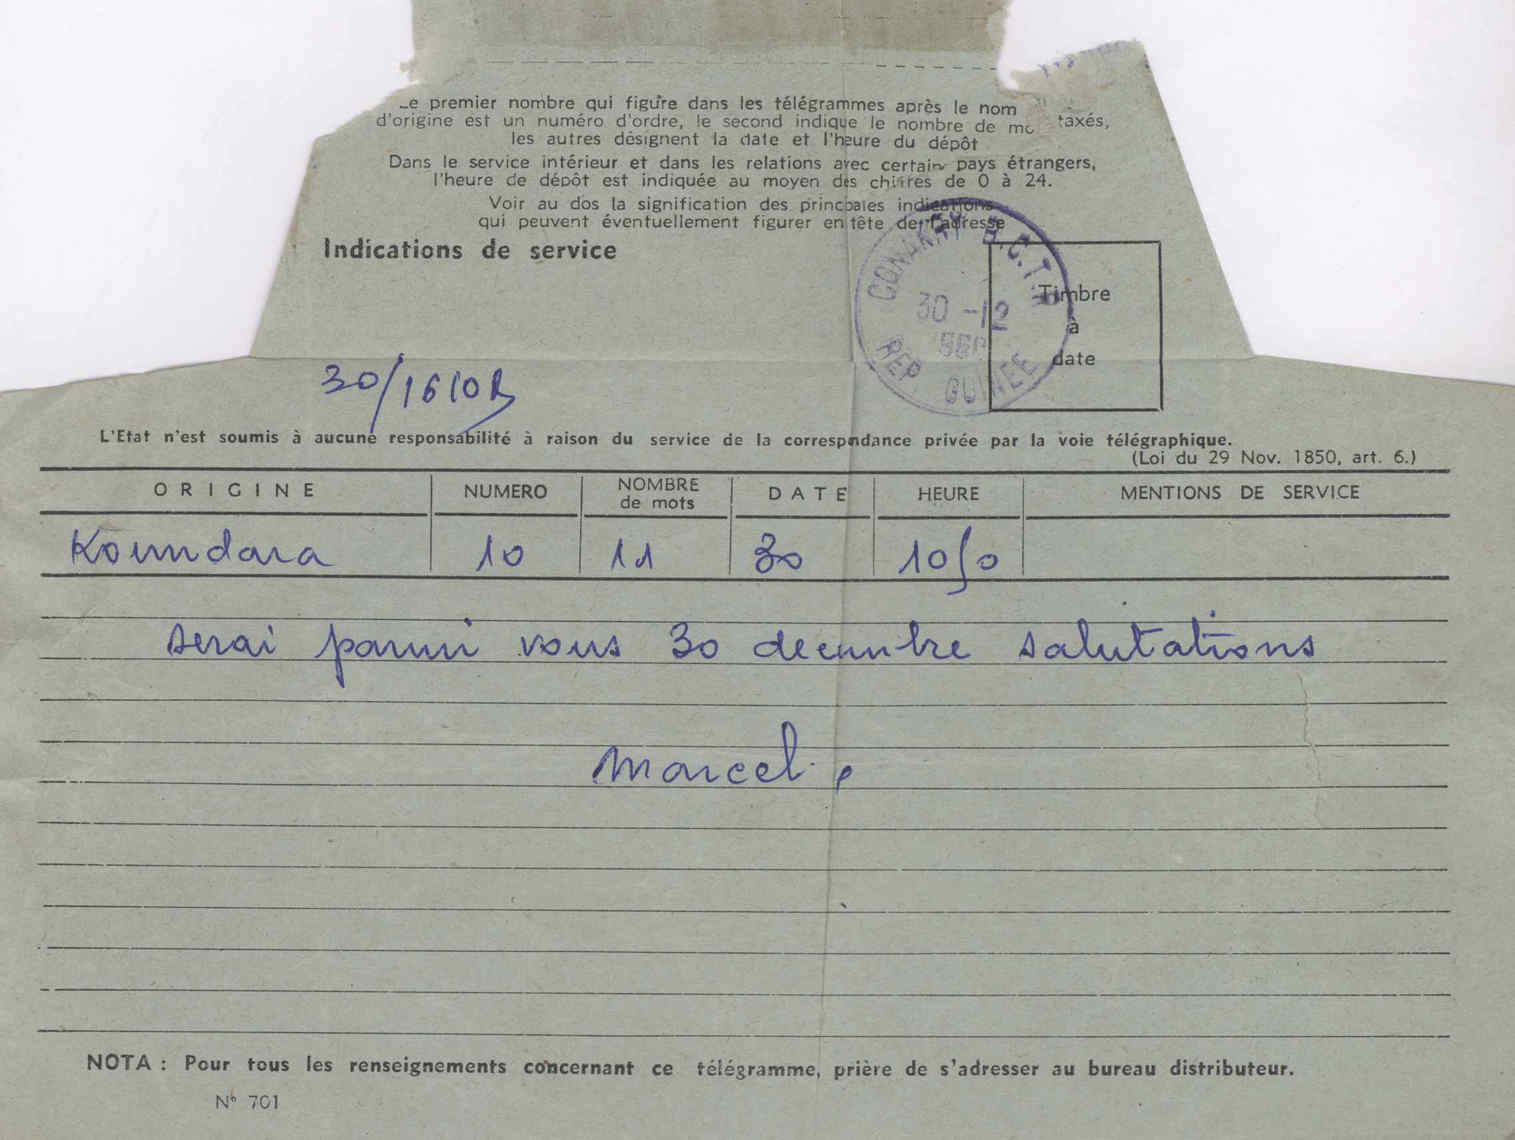 premier nombre qui figure dans les télégrammes après le nom
d'origine est un numéro d'ordre, le second indique le nombre de taxés,
les autres désignent la date et l'heure du dépôt
Dans le service intérieur et dans les relations avec certain pays étrangers,
l'heure de dépôt est indiquée au moyen des chiffres de 0 à 24.
Voir au dos la signification des princpales indications
qui peuvent éventuellement figurer en tête de l'adresse
Indications de service
CONAKRY B.C.T.
30 -12
REP GUINEE
Timbre
à
date
30/1610
L'Etat n'est soumis à aucune responsabilité à raison du service de la correspondance privée par la voie télégraphique.
(Loi du 29 Nov. 1850, art. 6.)
ORIGINE NUMERO NOMBRE de mots DATE HEURE MENTIONS DE SERVICE
Koundara 10 11 30 1050
serai parmi vous 30 decembre salutations
Marcel.
NOTA : Pour tous les renseignements concernant ce télégramme, prière de s'adresser au bureau distributeur.
N° 701